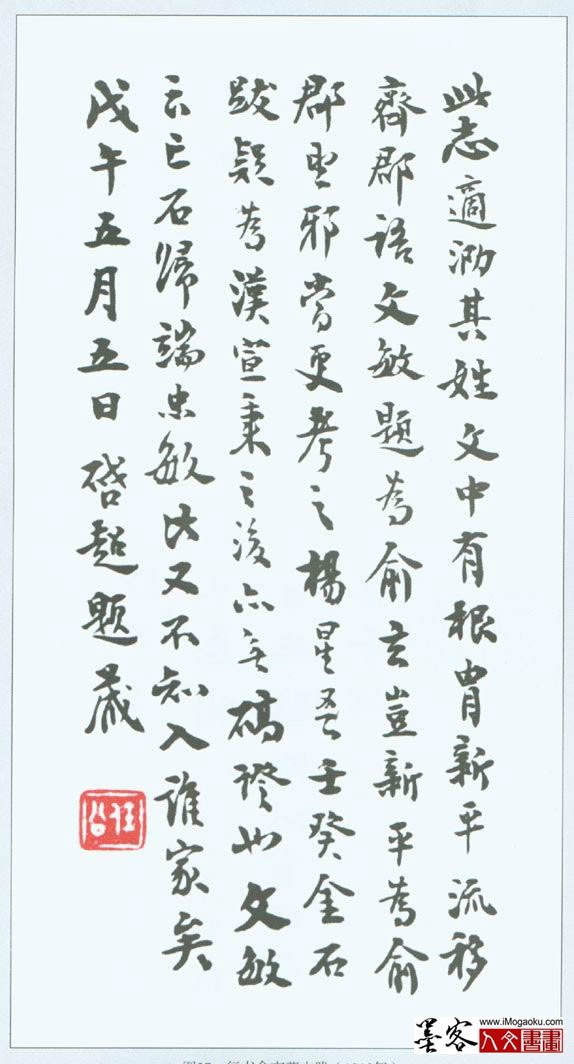 此志適泐其姓文中有根胄新平流移
齊郡語文敏題為俞玄豈新平為俞
郡望邪當更考之楊星吾壬癸金石
跋疑為漢宣秉之後亦無碻證也文敏
云亡石歸端忠敏比又不知入誰家矣
戊午五月五日 啓超題藏
任公
www.iMogaoku.com
墨客 人文書畫